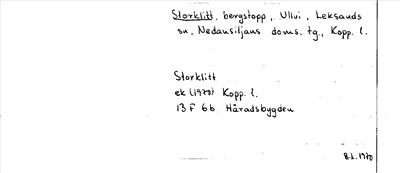 Storklitt, bergstopp, Ullvi, Leksands
sn, Nedansiljans doms. tg., Kopp. l.
Storklitt
ek (1970) Kopp. l.
13 F 6b Häradsbygden
1970